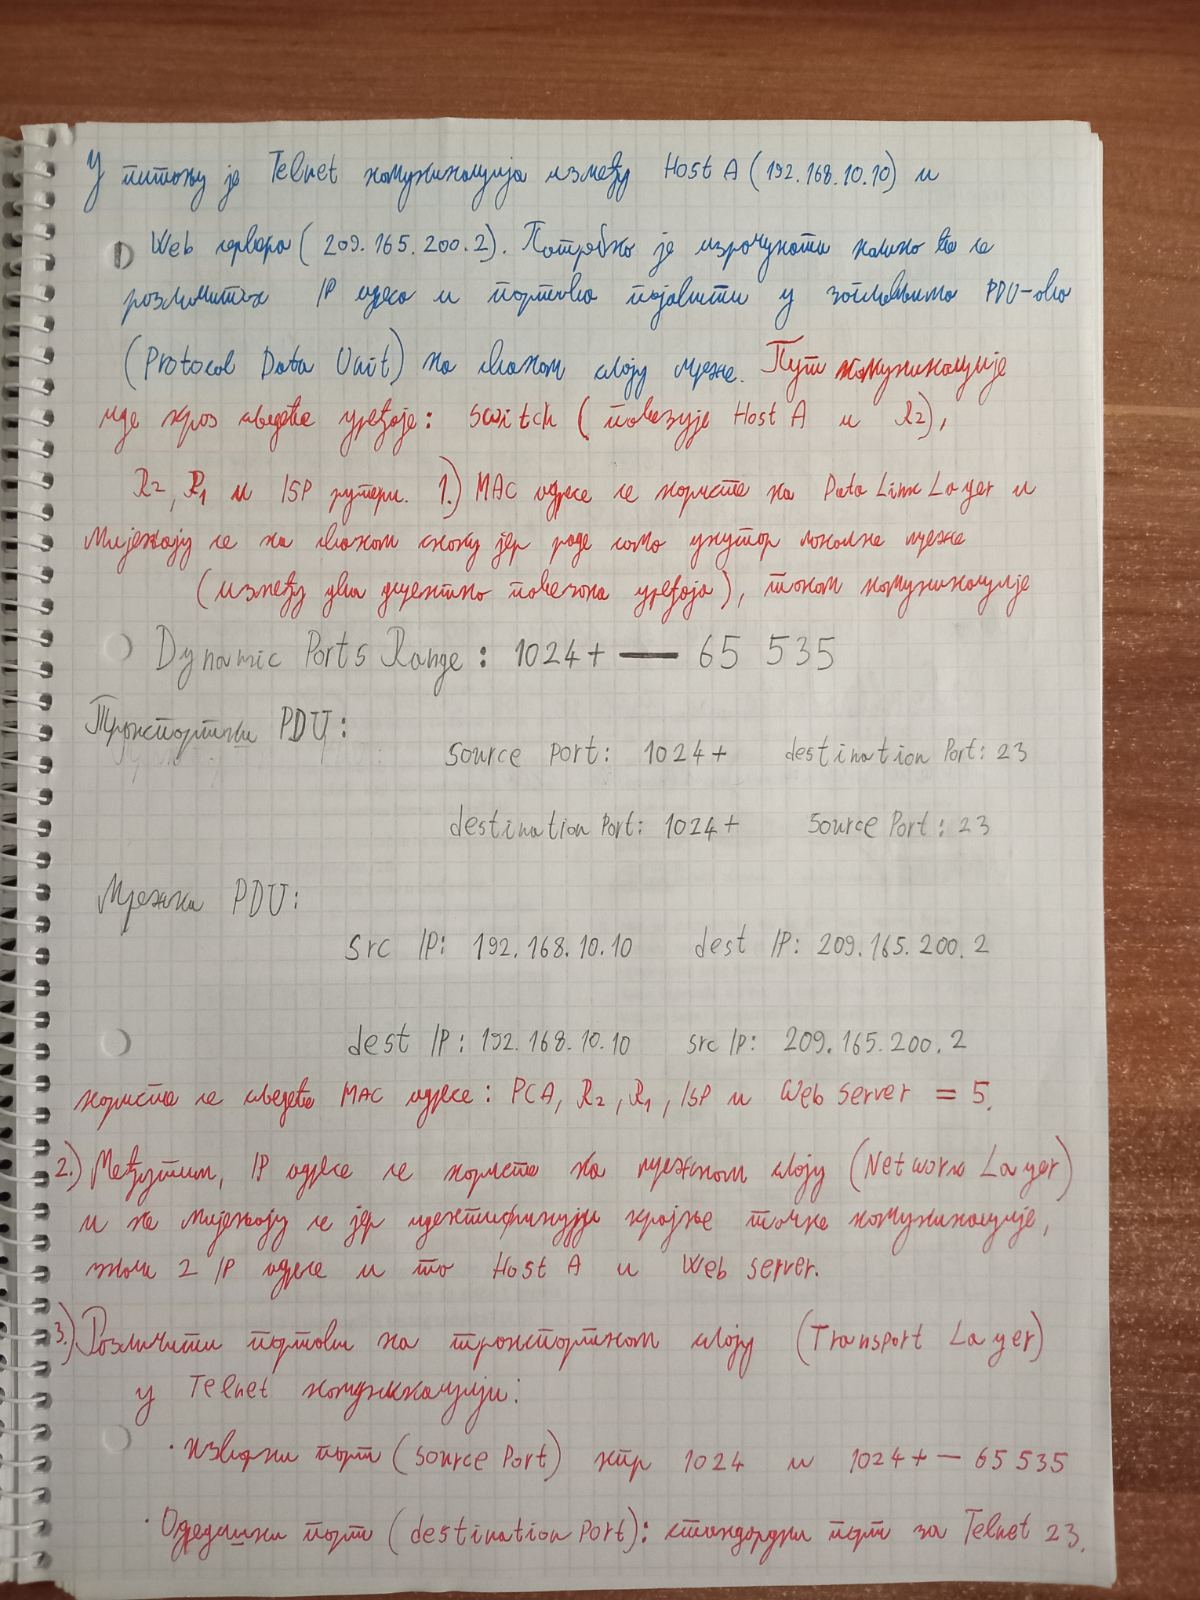 У питању је Telnet комуникација између Host A (192.168.10.10) и
Web сервера (209.165.200.2). Потребно је израчунати колико ће се
различитих IP адреса и портова појавити у заглављима PDU-ова
(Protocol Data Unit) на сваком слоју мреже. Пут комуникације
иде кроз следеће уређаје: switch (повезује Host A и R2),
R2, R1 и ISP рутери. 1.) MAC адресе се користе на Data Link Layer и
мијењају се на сваком скоку јер раде само унутар локалне мреже
(између два директно повезана уређаја), током комуникације
Dynamic Ports Range: 1024+ — 65 535
Транспортни PDU:
source port: 1024+ destination Port: 23
destination Port: 1024+ Source Port: 23
Мрежни PDU:
src IP: 192.168.10.10 dest IP: 209.165.200.2
dest IP: 192.168.10.10 src IP: 209.165.200.2
користе се следеће MAC адресе: PCA, R2, R1, ISP и Web server = 5.
2.) Међутим, IP адресе се користе на мрежном слоју (Network Layer)
и не мијењају се јер идентификују крајње тачке комуникације,
значи 2 IP адресе и то Host A и Web server.
3.) Различити портови на транспортном слоју (Transport Layer)
у Telnet комуникацији:
· изворни порт (source Port) нпр 1024 и 1024+ — 65 535
· Одредишни порт (destination Port): стандардни порт за Telnet 23.